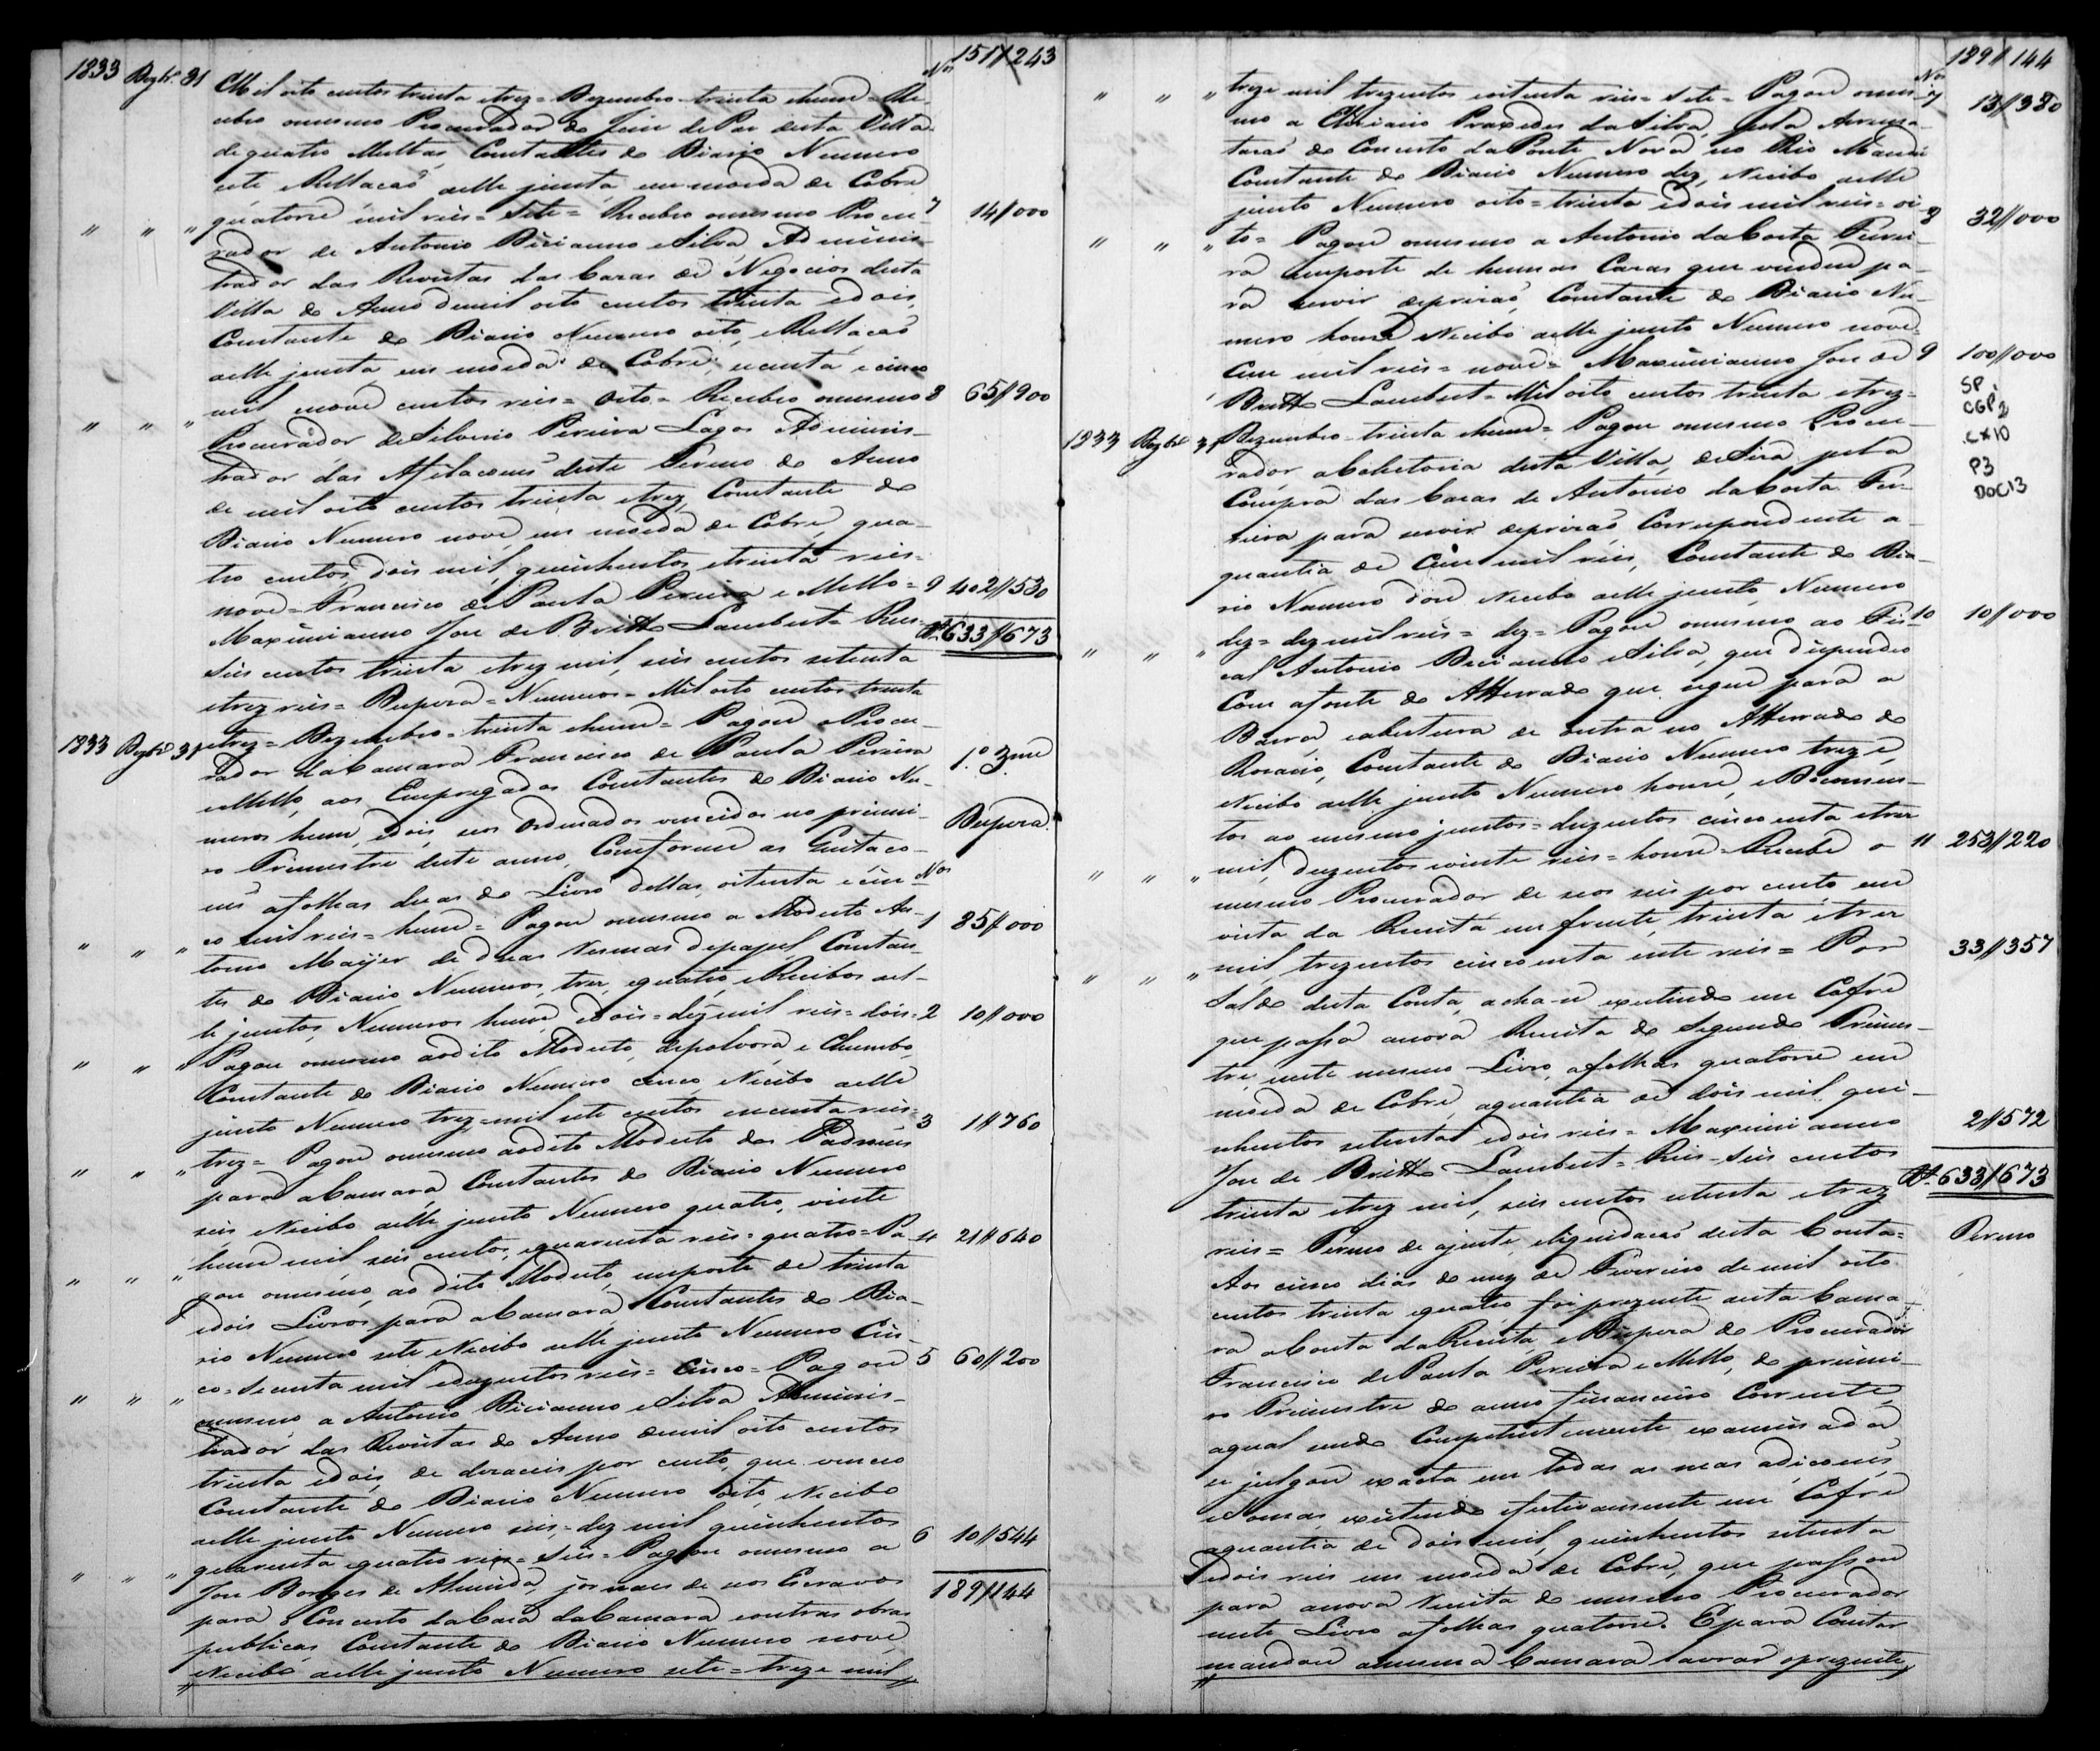 1833 Dezbr.º 31 Mil oito centos trinta etrez = Dezembro trinta ehum = Re- Nos 151//243
cebeo omesmo Procurador do Juiz de Paz desta Villa
de quatro Multas Constantes do Diario Numero
sete eRellacaõ aelle junta, em moeda de Cobre
quatorze mil reis = Sete = Recebeo omesmo Procu- 7 14//000
" " " rador de Antonio Dicianno eSilva Adminis-
trador das Revistas das Cazas de Negocios desta
Villa do Anno demil oito centos trinta edois,
Constante do Diario Numero oito, eRellacaõ
aelle junta em moeda de Cobre, secenta e cinco
mil nove centos reis = Oito = Recebeo omesmo 8 65//900
" " " Procurador deSilverio Pereira Lagos Adminis-
trador das Afilacoens deste Termo do Anno
de mil oito centos trinta etrez, Constante do
Diario Numero nove, em moeda de Cobre, qua-
tro centos, dois mil, quinhentos etrinta reis =
nove = Francisco dePaula Pereira e Mello = 9 402//530
Maximianno Jose de Britto Lambert = Reis R.s 633//673
Seis centos trinta etrez mil, seis centos setenta
etrez reis = Despeza = Numeros = Mil oito centos trinta
1833 Dezbrº 31 etrez = Dezembro = trinta ehum = Pagou oProcu-
rador daCamara Francisco de Paula Pereira 1.º 3.me
eMello, aos Empregados Constantes do Diario Nu-
meros hum, edois, seos Ordenados vencidos no primei- Despeza
ro Trimestre deste anno, Conforme as Quitaco-
ens afolhas duas do Livro dellas, oitenta e cin- Nos
co mil reis = hum = Pagou omesmo a Modesto An- 1 85//000
" " " tonio Mayer de duas resmas depapel, Constan-
tes do Diario Numeros, trez, equatro, eRecibos ael-
le juntos, Numeros hum, edois = dez mil reis = dois = 2 10//000
" " " Pagou omesmo aodito Modesto, depolvora, e Chumbo,
Constante do Diario Numero cinco eRecibo aelle
junto Numero trez = mil sete centos cecenta reis = 3 1//760
" " " trez = Pagou omesmo aodito Modesto dos Padroens
para aCamara, Constantes do Diario Numero
seis eRecibo aelle junto Numero quatro, vinte
hum mil seis centos, equarenta reis = quatro = Pa- 4 21//640
" " " gou omesmo, ao dito Modesto, emporte de trinta
edois Livros para aCamara, Constantes do Dia-
rio Numero sete eRecibo aelle junto Numero Cin-
co = Secenta mil eduzentos reis = Cinco = Pagou 5 60//200
" " " omesmo a Antonio Diciano eSilva Adminis-
trador das Revistas do Anno demil oito centos
trinta edois, de dezaseis por cento, que venceo
Constante do Diario Numero oito, eRecibo
aelle junto Numero seis = dez mil quinhentos
quarenta equatro reis = Seis = Pagou omesmo a 6 10//544
" " " Jose Borges de Almeida, jornaes de seos Escravos
para o Concerto daCaza daCamara eoutras obras 189//144
publicas, Constante do Diario Numero nove,
eRecibo aelle junto Numero sete = treze mil
Nos 189//144
" " " treze mil trezentos eoitenta reis = Sete = Pagou omes- 7 13//380
mo a Mariano Praxedes daSilva, pela Arrema-
tacaõ do Concerto daPonte Nova no Rio Mandu
Constante do Diario Numero dez, eRecibo aelle
junto Numero oito = trinta edois mil reis = oi- 8 32//000
" " " to = Pagou omesmo a Antonio daCosta Ferrei-
ra emporte de humas Cazas que vendeu pa-
ra servir deprizaõ, Constante do Diario Nu-
mero honze eRecibo aelle junto Numero nove =
Cem mil reis = nove = Maximianno Jose de 9 100//000
Britto Lambert = Mil oito centos trinta etrez = SP
CGP2
CX10
P3
DOC13
1833 Dezbrº 31 Dezembro = trinta ehum = Pagou omesmo Procu-
rador aColletoria desta Villa, deSiza pela
Compra das Cazas de Antonio daCosta Fer-
reira para servir deprizaõ, Correspondente a-
quantia de Cem mil reis, Constante do Dia-
rio Numero doze eRecibo aelle junto, Numero
dez = dez mil reis = dez = Pagou omesmo ao Fis- 10 10//000
" " " cal Antonio Dicianno eSilva, que dispendeo
Com aponte do Atterrado que segue para a
Barra, eabertura de outra no Atterrado do
Rosario, Constante do Diario Numero treze,
eRecibo aelle junto Numero honze, eDocumen-
tos ao mesmo juntos = duzentos cincoenta etrez
mil, duzentos evinte reis = honze = Recebe o 11 253//220
" " " mesmo Procurador de seos seis por cento, em
vista da Receita em frente, trinta etrez
mil, trezentos cincoenta esete reis = Por 33//357
" " " Saldo desta Conta, acha-se existindo em Cofre
que passa anova Receita do Segundo Trimes-
tre, neste mesmo Livro, afolhas quatorze em
moeda de Cobre, aquantia de dois mil, qui-
nhentos setenta edois reis = Maximianno 2//572
Jose de Britto Lambert = Reis = Seis centos
trinta etrez mil, seis centos setenta etrez R.s 633//673
reis = Termo de ajuste, eliquidacaõ desta Conta = Termo
Aos cinco dias do mez de Fevereiro de mil oito
centos trinta equatro, foi prezente aesta Cama-
ra aConta daReceita, eDespeza do Procurador
Francisco dePaula Pereira eMello, do primei-
ro Trimestre do anno financeiro Corrente,
aqual sendo Competentemente examinada
se julgou exacta em todas as suas adicoens,
eSomas, existindo efectivamente em Cofre
aquantia de dois mil, quinhentos setenta
edois reis em moeda de Cobre, que passou
para anova Receita do mesmo Procurador
neste Livro afolhas quatorze. Epara Constar
mandou amesma Camara lavrar oprezente